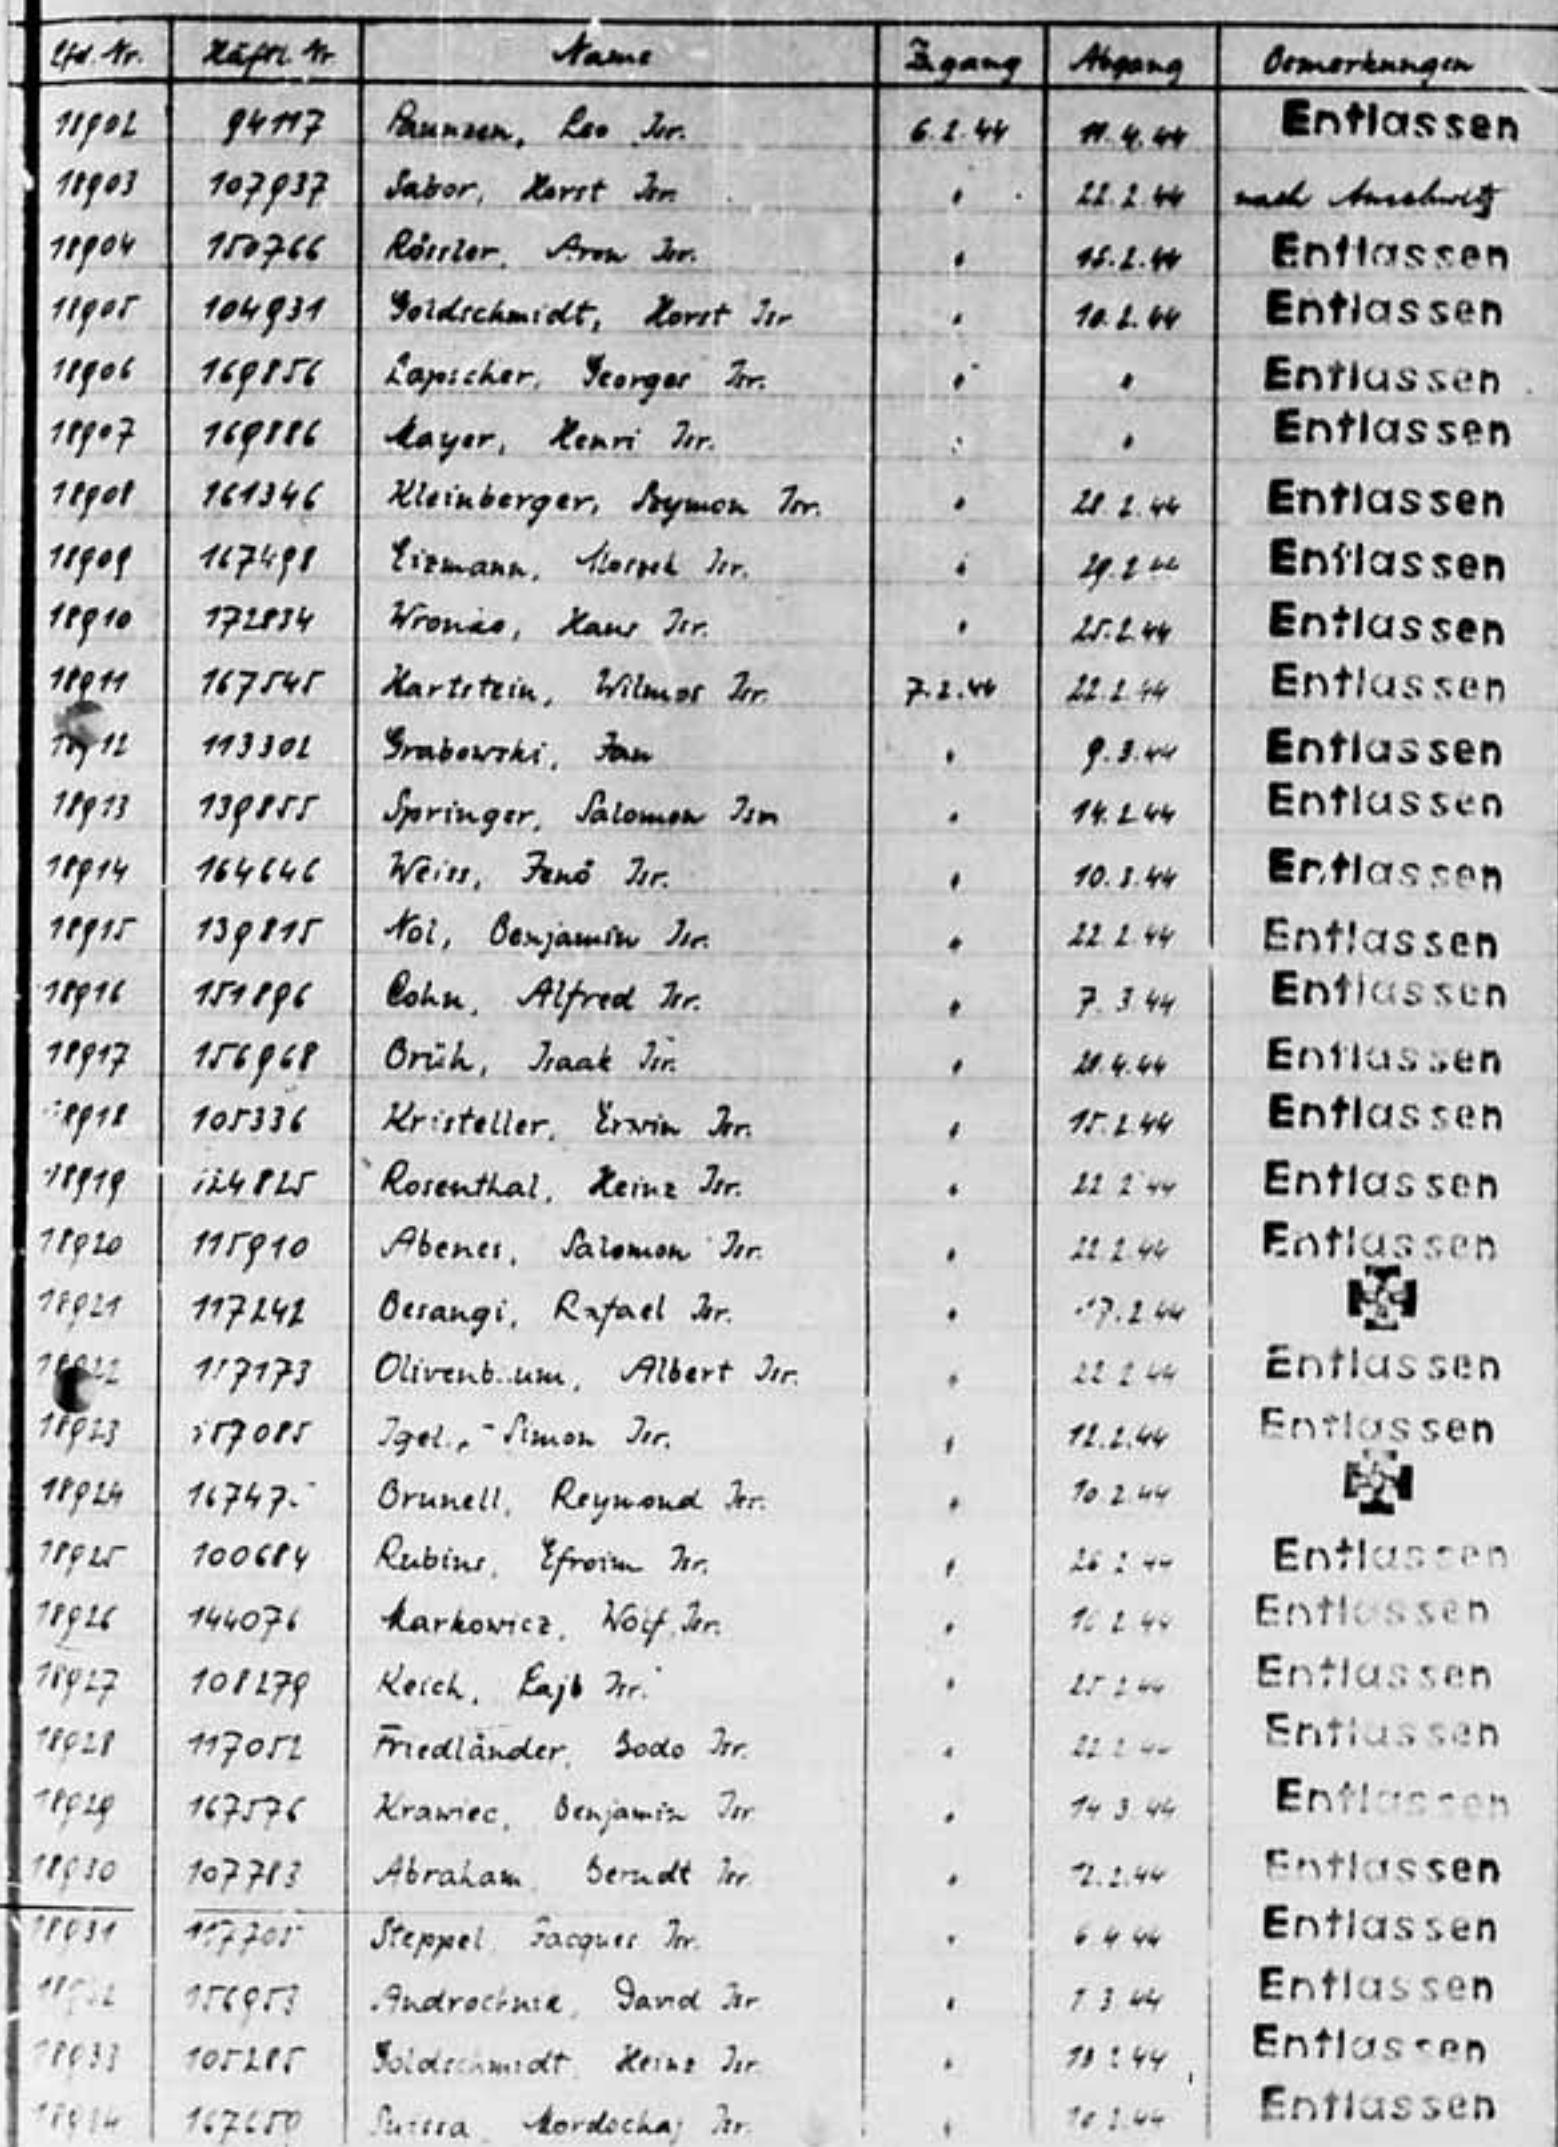 Lfd. Nr. Häftl. Nr Name Zugang Abgang Bemerkungen
18902 94117 Leo Isr. 6.2.44 11.4.44 Entlassen
18903 107937 Sabor, Horst Isr. " 22.2.44 nach Auschwitz
18904 150766 Rössler, Aron Isr. " 15.2.44 Entlassen
18905 104931 Goldschmidt, Horst Isr " 10.2.44 Entlassen
18906 169856 Lapscher, Georges Isr. " " Entlassen
18907 169886 Mayer, Henri Isr. " " Entlassen
18908 161346 Kleinberger, Szymon Isr. " 28.2.44 Entlassen
18909 167498 Eizmann, Isr. " 29.2.44 Entlassen
18910 172834 Hans Isr. " 25.2.44 Entlassen
18911 167545 Hartstein, Wilmos Isr. 7.2.44 22.2.44 Entlassen
18912 113302 Grabowski, Jan " 9.3.44 Entlassen
18913 139855 Springer, Salomon Ism " 14.2.44 Entlassen
18914 164646 Weiss, Jenö Isr. " 10.3.44 Entlassen
18915 139815 Nol, Benjamin Isr. " 22.2.44 Entlassen
18916 151896 Cohn, Alfred Isr. " 7.3.44 Entlassen
18917 156968 Brüh, Isaak Isr. " 28.4.44 Entlassen
18918 105336 Kristeller, Erwin Isr. " 15.2.44 Entlassen
18919 124825 Rosenthal, Heinz Isr. " 22 2 44 Entlassen
18920 115910 Abenes, Salomon Isr. " 22.2.44 Entlassen
18921 117242 Besangi, Rafael Isr. " 17.2.44
18922 157173 Olivenbaum, Albert Isr. " 22 2 44 Entlassen
18923 157085 Igel, Simon Isr. " 12.2.44 Entlassen
18924 Brunell, Reymond Isr. " 10.2.44
18925 100684 Rubins, Efroim Isr. " 26 2 44 Entlassen
18926 144076 Markowicz, Wolf Isr. " Entlassen
18927 108279 Keich, Lajb Isr. " 25 2 44 Entlassen
18928 117052 Friedländer, Bodo Isr. " 22 2 44 Entlassen
18929 167576 Krawiec, Benjamin Isr " 14 3 44 Entlassen
18930 107783 Abraham, Berndt Isr " 12.2.44 Entlassen
18931 117705 Steppel Jacques Isr. " 6 4 44 Entlassen
18932 156953 David Isr " Entlassen
18933 105285 Goldschmidt Heinz Isr. " Entlassen
18934 Mordechaj Isr. " 10 2 44 Entlassen